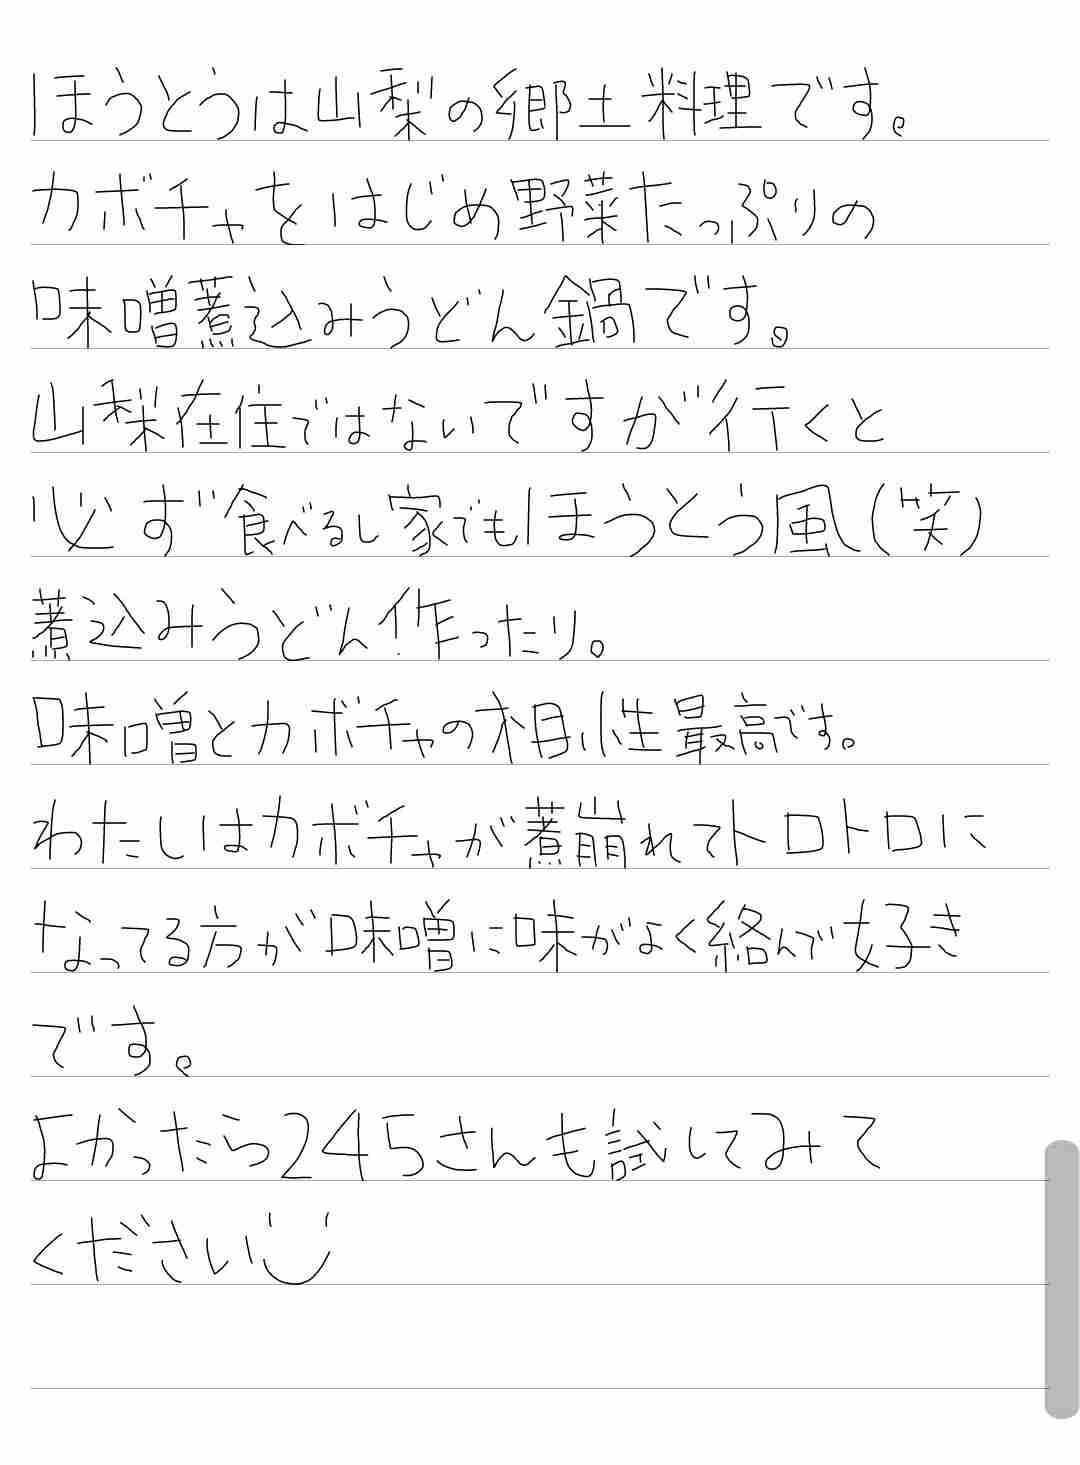 ほうとうは山梨の郷土料理です。
カボチャをはじめ野菜たっぷりの
味噌煮込みうどん鍋です。
山梨在住ではないですが行くと
必ず食べるし家でもほうとう風(笑)
煮込みうどん作ったり。
味噌とカボチャの相性最高です。
わたしはカボチャが煮崩れてトロトロに
なってる方が味噌に味がよく絡んで好き
です。
よかったら245さんも試してみて
ください